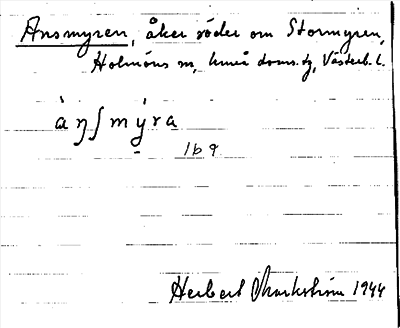 Ansmyren, åker söder om Stormyren,
Holmöns sn, Umeå doms. tg, Västerb. l.
àŋʃmýra
1b9
Herbert Markström 1944